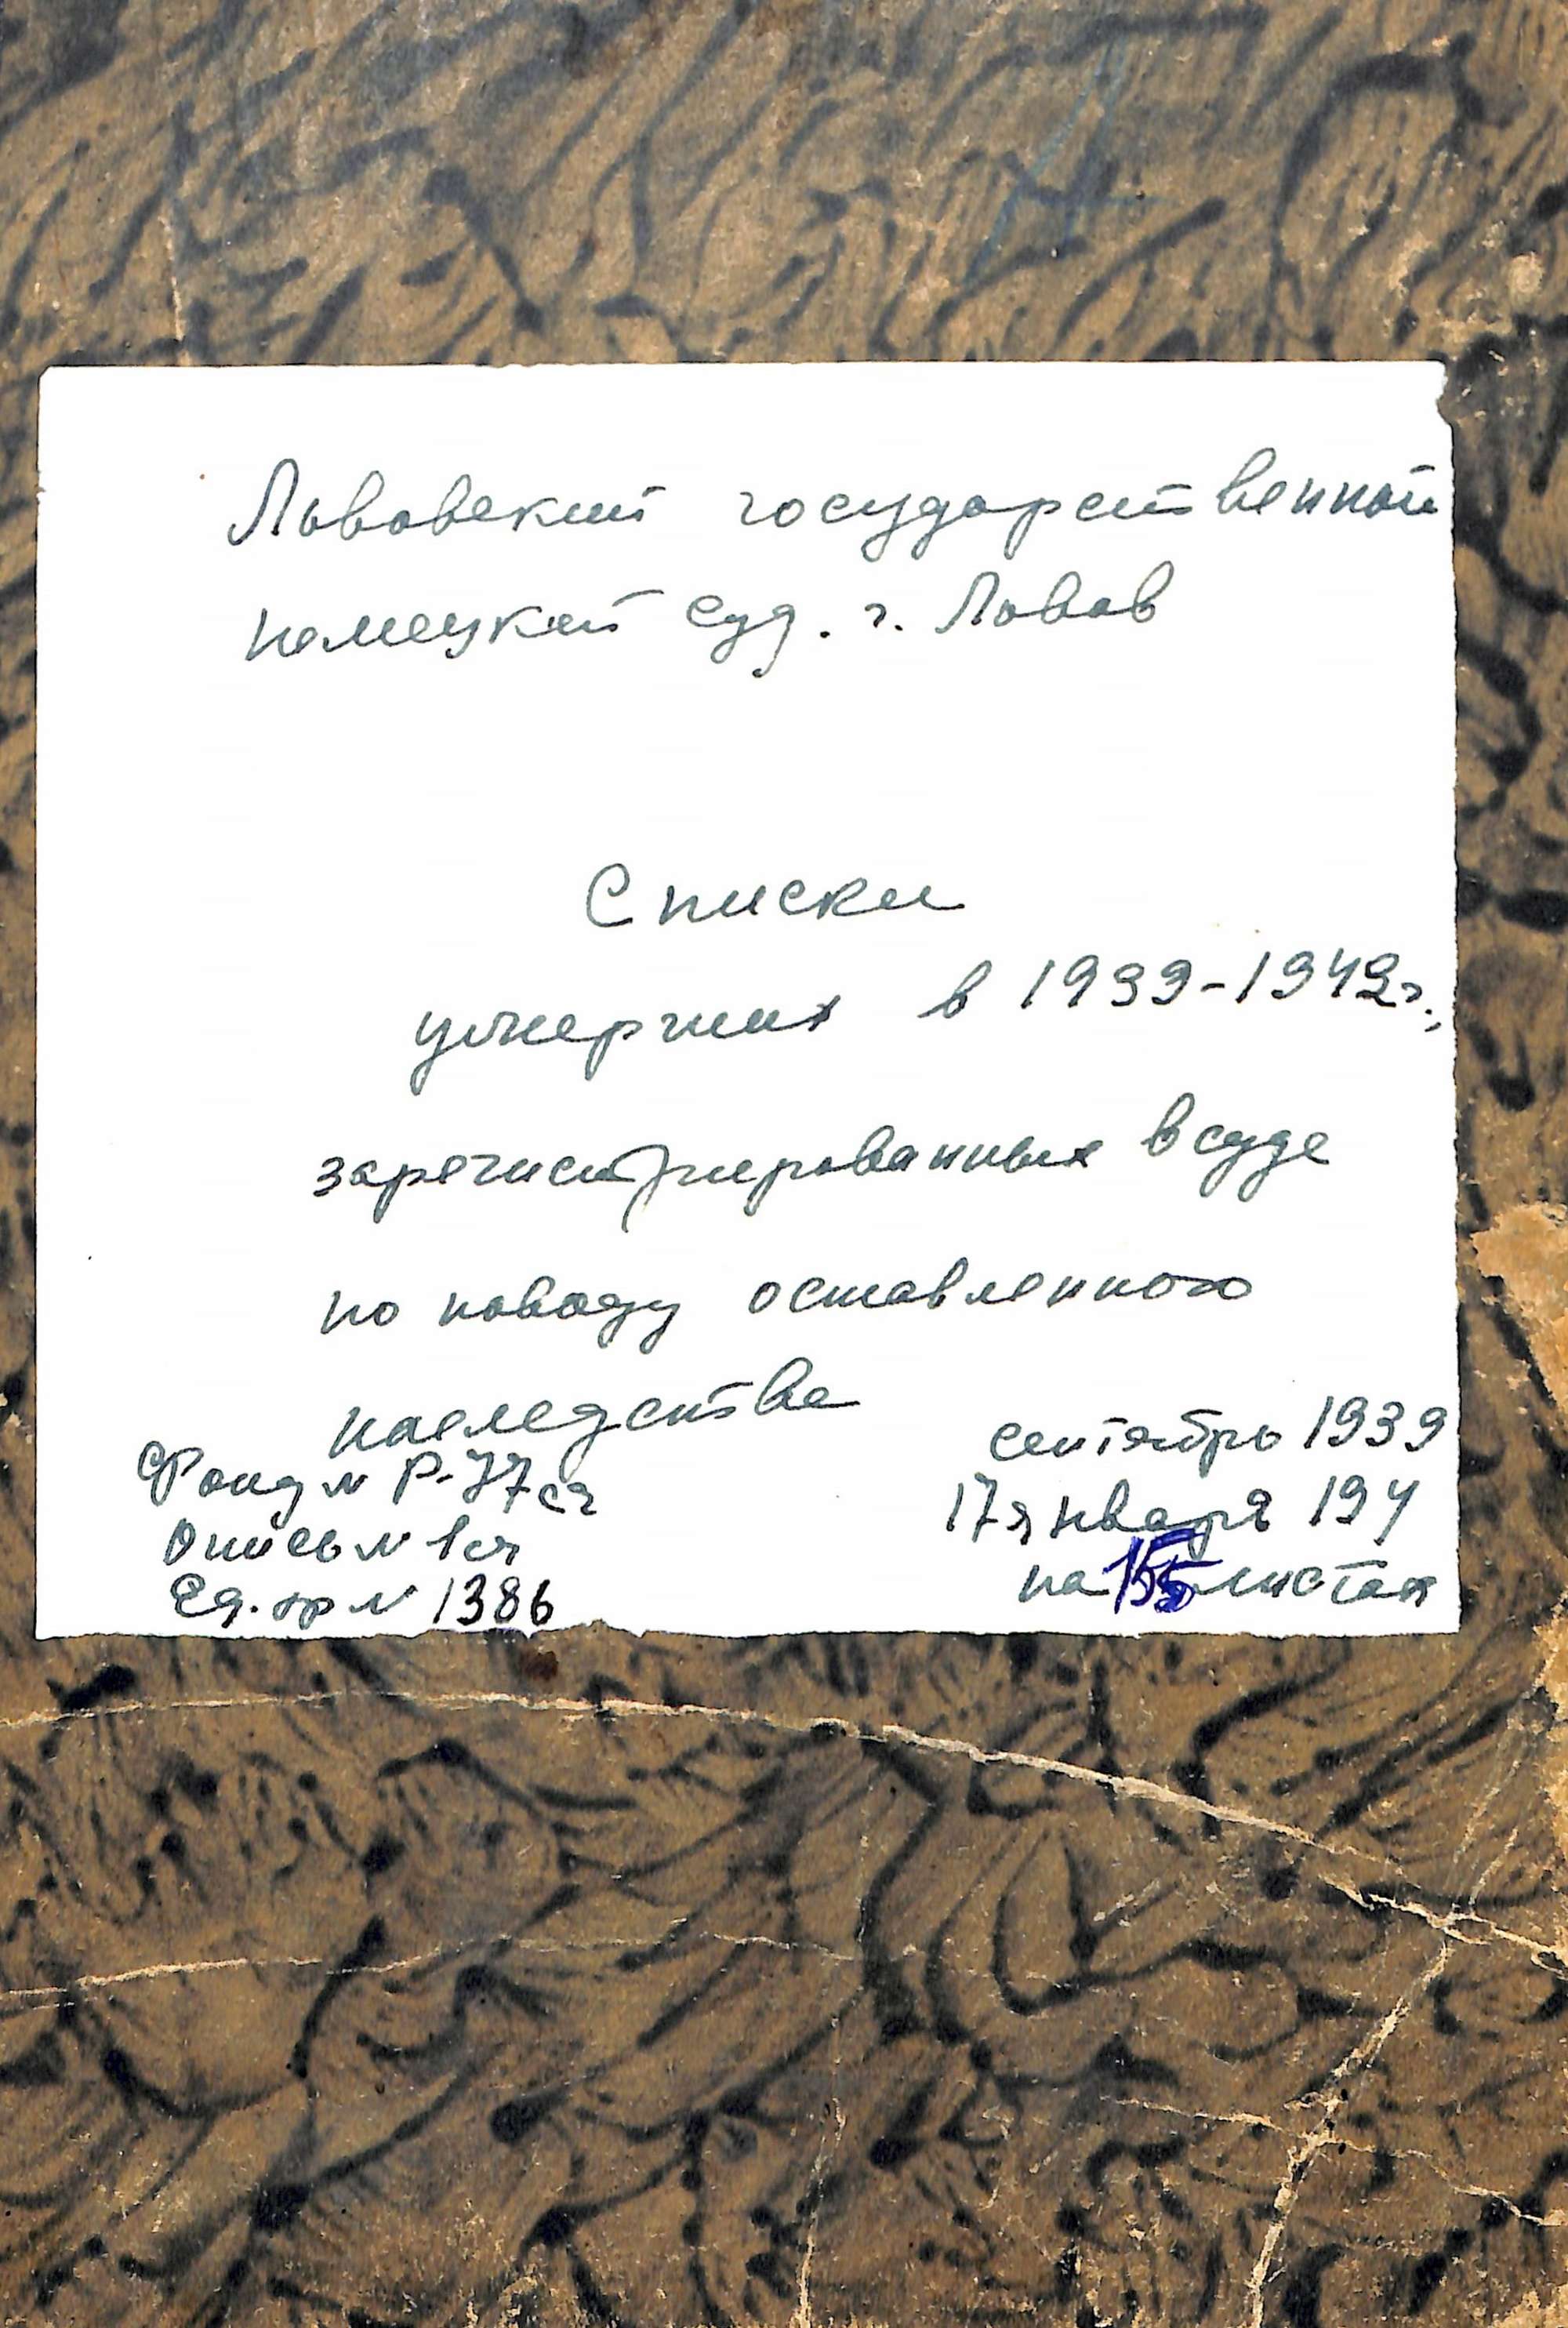 Львовский государственной
немецкий суд. г. Львов
Списки
умерших в 1939-1942г.,
зарегистрированных в суде
по поводу оставленного
наследства
сентябрь 1939
17 января 194
на 155 листах
Фонд № Р-77сч
Опись № 1сч
Ед. хр № 1386